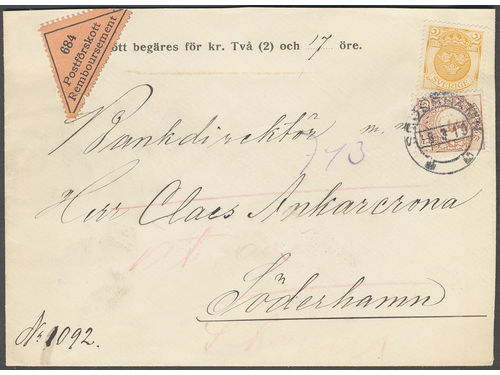 684
Postförskott
Remboursement
ott begäres för kr. Två (2) och 17 öre.
2 2
SVERIGE
Bankdirektör m. m.
713
Herr Claes Ankarcrona
Söderhamn
No 1092.